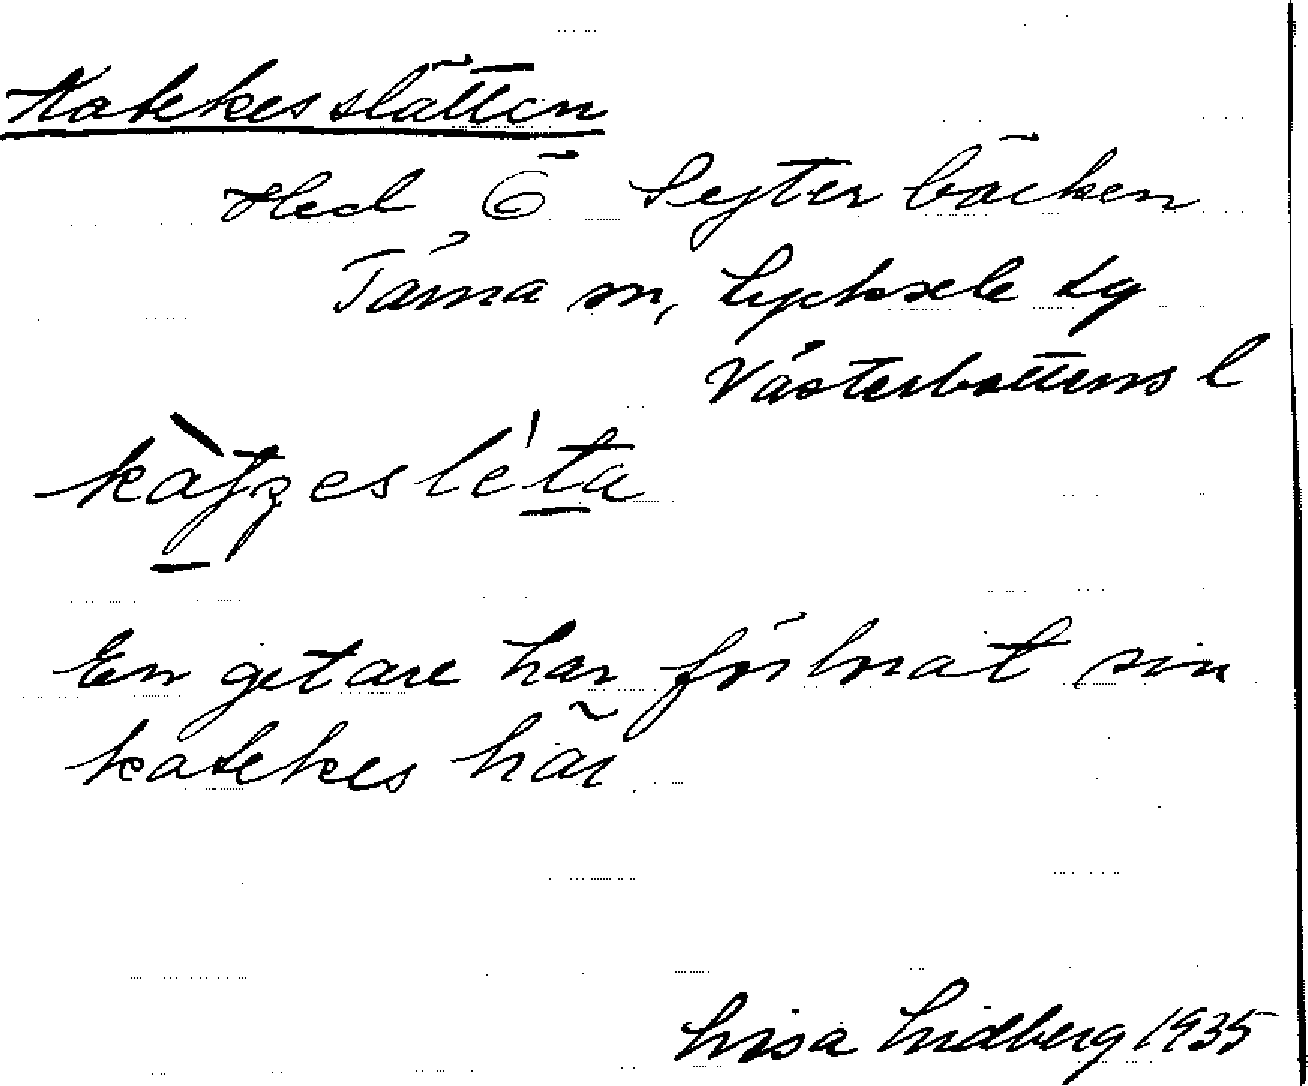 Katekesslåtten
Hed Ö Sejterbäcken
Tärna sn, Lycksele lg
Västerbottens l
En getare har förlorat sin
katekes här
Lisa Lidberg 1935